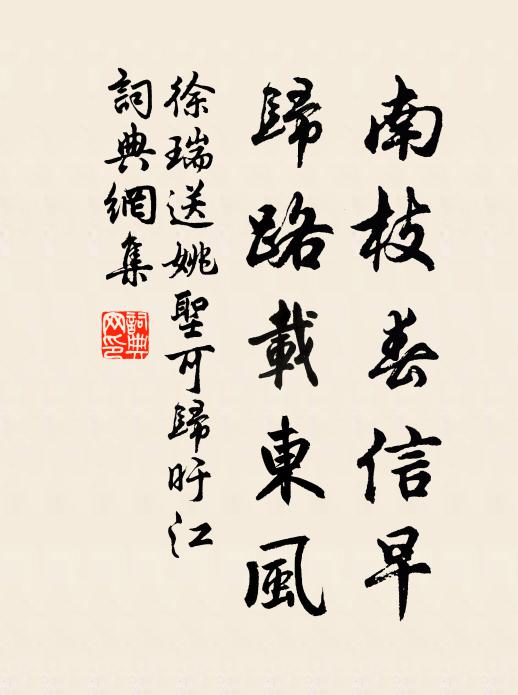 南枝春信早
歸路載東風
徐瑞送姚聖可歸旴江
詞典網集
詞典網印